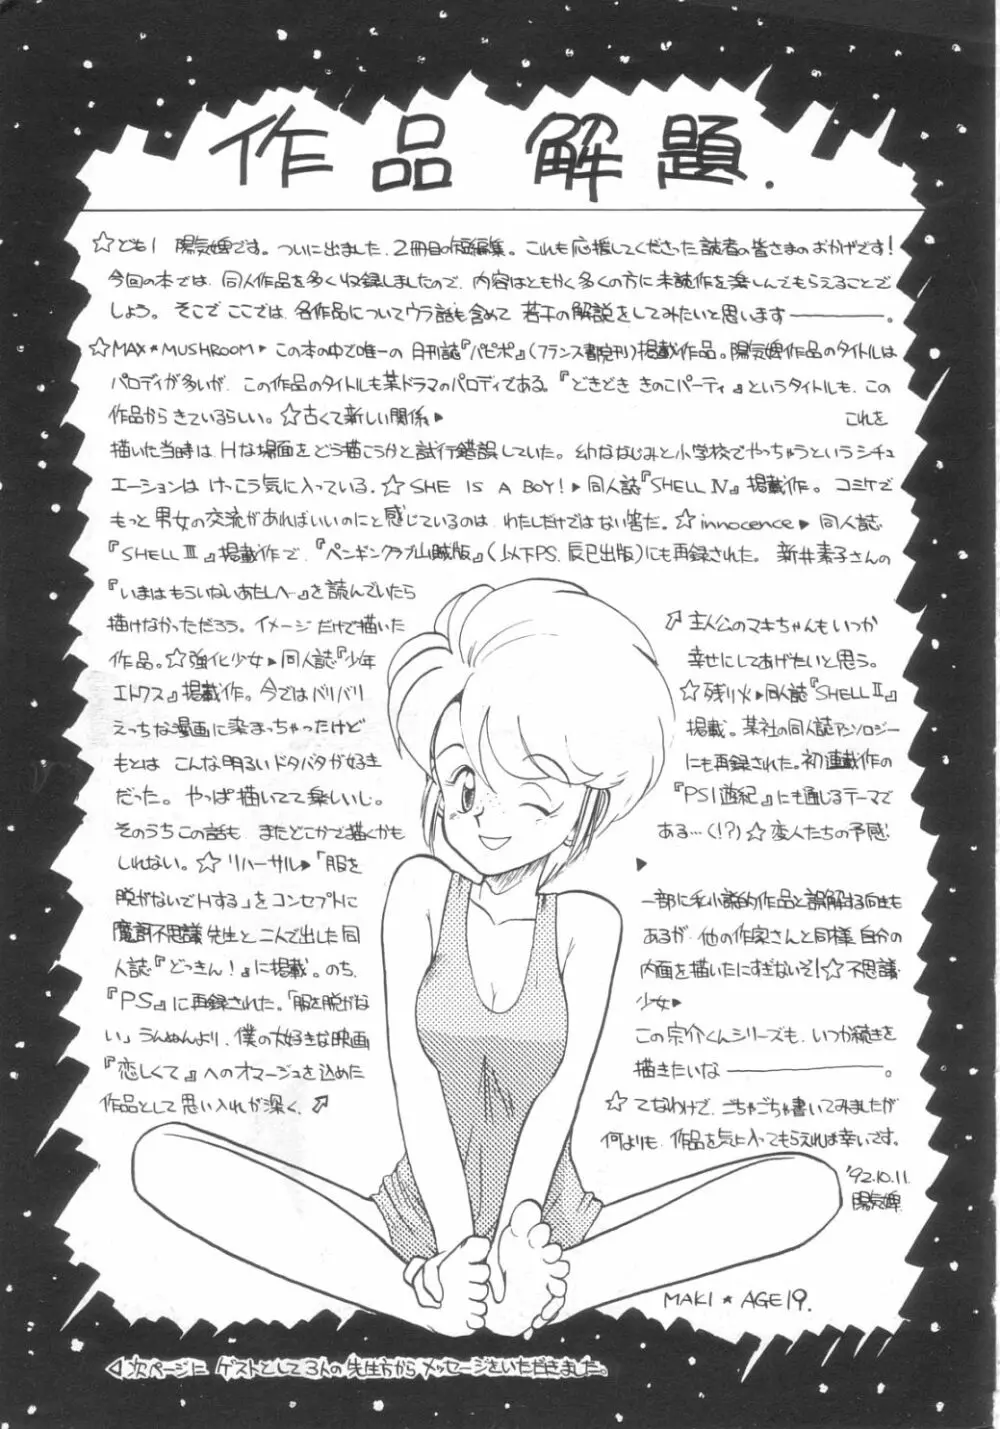 作品解題.
☆ども! 陽気婢です。ついに出ました、2冊目の短編集。これも応援してくださった読者の皆さまのおかげです!
今回の本では、同人作品を多く収録しましたので、内容はともかく多くの方に未読作を楽しんでもらえることで
しょう。そこで ここでは、各作品についてウラ話も含めて 若干の解説をしてみたいと思います―――。
☆MAX★MUSHROOM▶この本の中で唯一の 月刊誌『パピポ』(フランス書院刊)掲載作品。陽気婢作品のタイトルは
パロディが多いが、この作品のタイトルも某ドラマのパロディである。『どきどき きのこパーティ』というタイトルも、この
作品からきているらしい。☆古くて新しい関係▶ これを
描いた当時は、Hな場面をどう描こうかと試行錯誤していた。幼ななじみと小学校でやっちゃうというシチュ
エーションは けっこう気に入っている。☆SHE IS A BOY!▶同人誌『SHELL Ⅳ』掲載作。コミケで
もっと男女の交流があればいいのにと感じているのは、わたしだけではない筈だ。☆innocence▶同人誌
『SHELL Ⅲ』掲載作で、『ペンギンクラブ山賊版』(以下PS、辰巳出版)にも再録された。新井素子さんの
『いまはもういないあたしへ…』を読んでいたら
描けなかっただろう。イメージだけで描いた
作品。☆強化少女▶同人誌『少年
エトワス』掲載作。今ではバリバリ
えっちな漫画に染まっちゃったけど
もとは こんな明るいドタバタが好き
だった。やっぱ描いてて楽しいし。
そのうちこの話も、またどこかで描くかも
しれない。☆リハーサル▶「服を
脱がないでHする」をコンセプトに
魔訶不思議先生と二人で出した同
人誌『どっきん!』に掲載。のち、
『PS』に再録された。「服を脱がな
い」うんぬんより、僕の大好きな映画
『恋しくて』へのオマージュを込めた
作品として思い入れが深く、↗
↗主人公のマキちゃんもいつか
幸せにしてあげたいと思う。
☆残り火▶同人誌『SHELL Ⅱ』
掲載。某社の同人誌アンソロジー
にも再録された。初連載作の
『PSI遊紀』にも通じるテーマで
ある…(!?)☆変人たちの予感
▶
一部に私小説的作品と誤解する向きも
あるが、他の作家さんと同様、自分の
内面を描いたにすぎないぞ!☆不思議
少女▶
この宗介くんシリーズも、いつか続きを
描きたいな―――。
☆てなわけで、ごちゃごちゃ書いてみましたが
何よりも、作品を気に入ってもらえれば幸いです。
'92.10.11.
陽気婢
MAKI★AGE19.
◁次ページに ゲストとして3人の先生方からメッセージをいただきました。